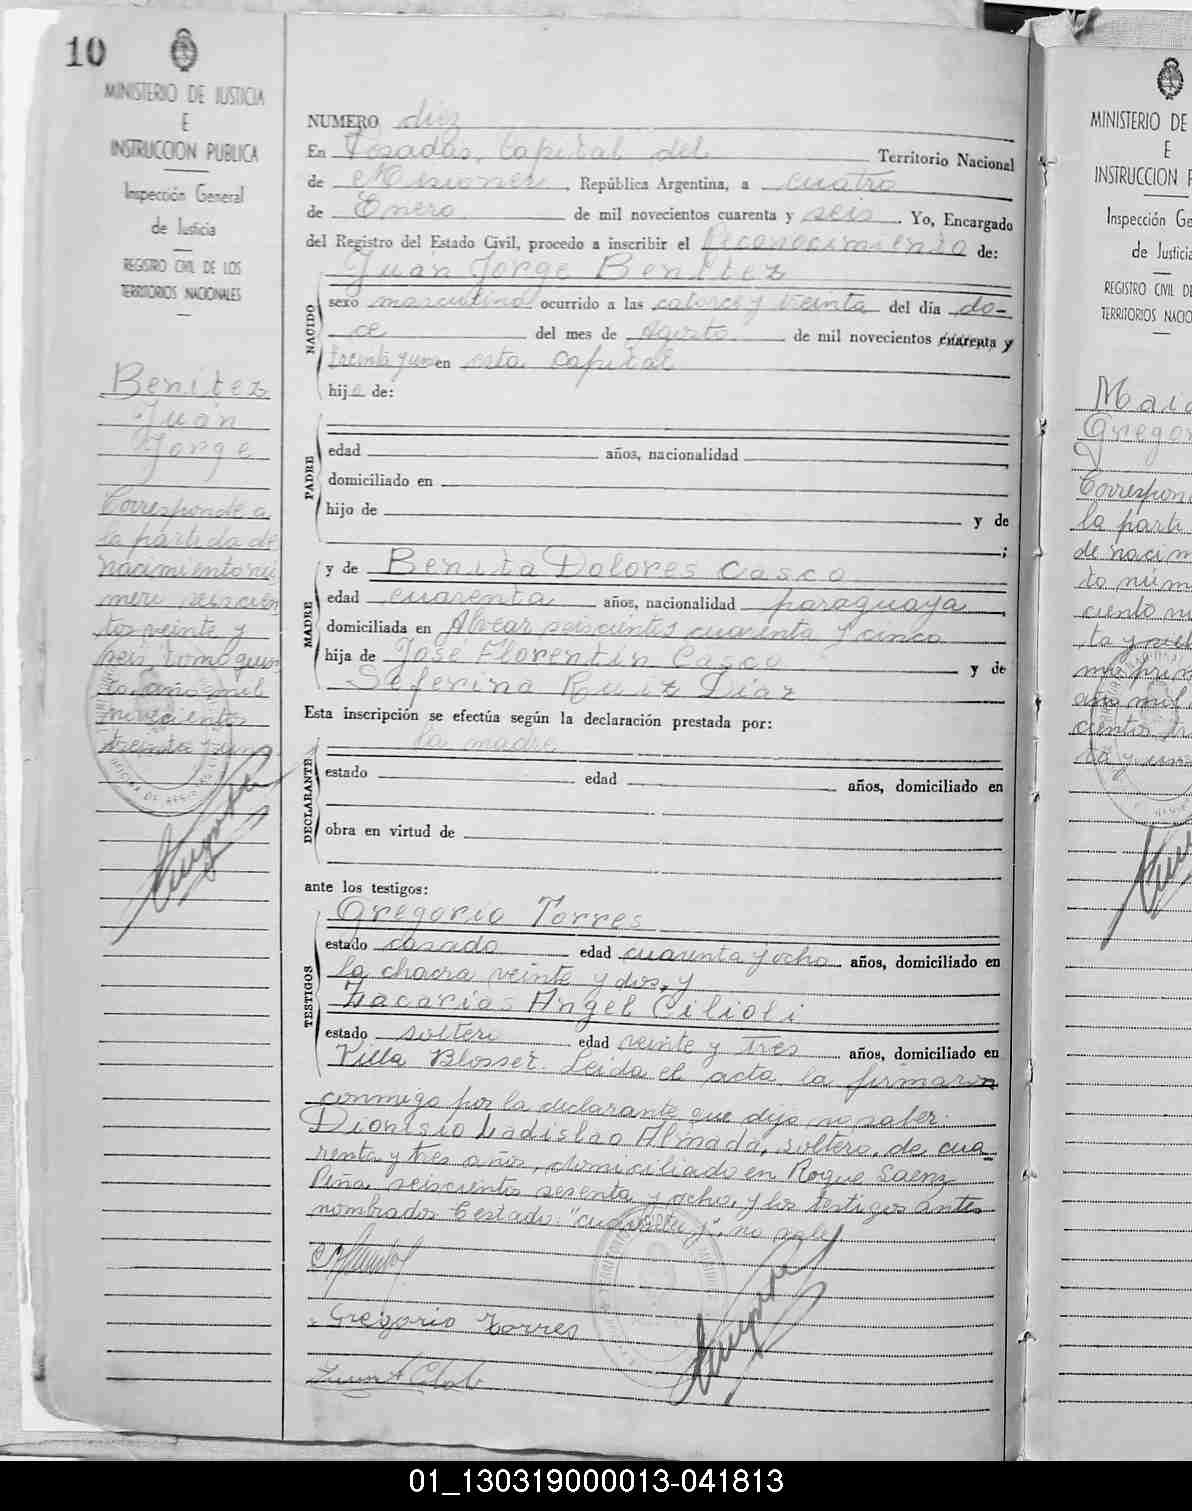 10
MINISTERIO DE JUSTICIA
E
INSTRUCCION PUBLICA
Inspección General
de Justicia
REGISTRO CIVIL DE LOS
TERRITORIOS NACIONALES
Benitez
Juan
Jorge
Corresponde a
la partida de
nacimiento nú
mero seiscien
tos veinte y
seis, tomo quin
to año mil
novecientos
treinta y uno
NUMERO diez
En Posadas, Capital del Territorio Nacional
de Misiones, República Argentina, a cuatro
de Enero de mil novecientos cuarenta y seis. Yo, Encargado
del Registro del Estado Civil, procedo a inscribir el Reconocimiento de:
Juan Jorge Benitez
NACIDO
sexo masculino ocurrido a las catorce y treinta del día do-
ce del mes de Agosto de mil novecientos cuarenta y
treinta y uno en esta capital
hijo de:
PADRE
edad años, nacionalidad
domiciliado en
hijo de y de
;
MADRE
y de Benita Dolores Casco
edad cuarenta años, nacionalidad paraguaya
domiciliada en Alvear seiscientos cuarenta y cinco
hija de José Florentin Casco y de
Seferina Ruiz Diaz
Esta inscripción se efectúa según la declaración prestada por:
la madre
DECLARANTE
estado edad años, domiciliado en
obra en virtud de
ante los testigos:
TESTIGOS
Gregorio Torres
estado casado edad cuarenta y ocho años, domiciliado en
la chacra veinte y dos, y
Zacarias Angel Cilioli
estado soltero edad veinte y tres años, domiciliado en
Villa Blosset. Leida el acta la firmaron
conmigo por la declarante que dijo no saber:
Dionisio Ladislao Almada, soltero, de cua-
renta y tres años, domiciliado en Roque Saenz
Peña seiscientos sesenta y ocho, y los testigos antes
nombrados. Testado: "cuarenta y", no vale.
Gregorio Torres
MINISTERIO DE
E
INSTRUCCION P
Inspección Ge
de Justicia
REGISTRO CIVIL DE
TERRITORIOS NACIO
Gregor
Correspon
la parti
de nacim
to núm
ciento no
01_130319000013-041813